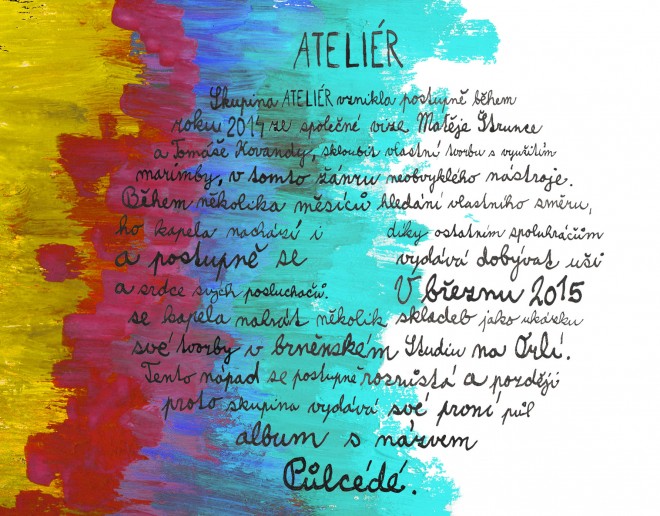 ATELIÉR
Skupina ATELIÉR vznikla postupně během
roku 2014 ze společné vize Matěje Štrunce
a Tomáše Kovandy, skloubit vlastní tvorbu s využitím
marimby, v tomto žánru neobvyklého nástroje.
Během několika měsíců hledání vlastního směru,
ho kapela nachází i díky ostatním spoluhráčům
a postupně se vydává dobývat uši
a srdce svých posluchačů. V březnu 2015
se kapela nahrát několik skladeb jako ukázku
své tvorby v brněnském Studiu na Orlí.
Tento nápad se postupně rozrůstá a později
proto skupina vydává své první půl
album s názvem
Půlcédé.